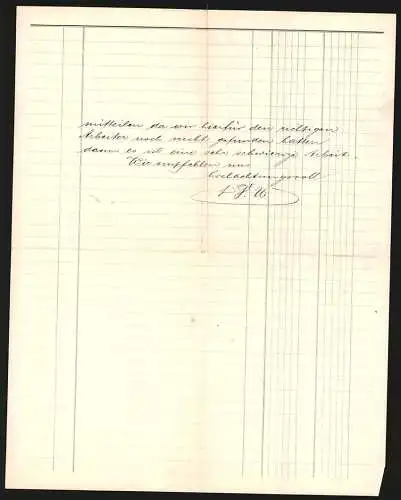 mitteilen da wir hierfür den richtigen
Arbeiter noch nicht gefunden hatten
denn es ist eine sehr schwierige Arbeit.
Wir empfehlen uns
hochachtungsvoll